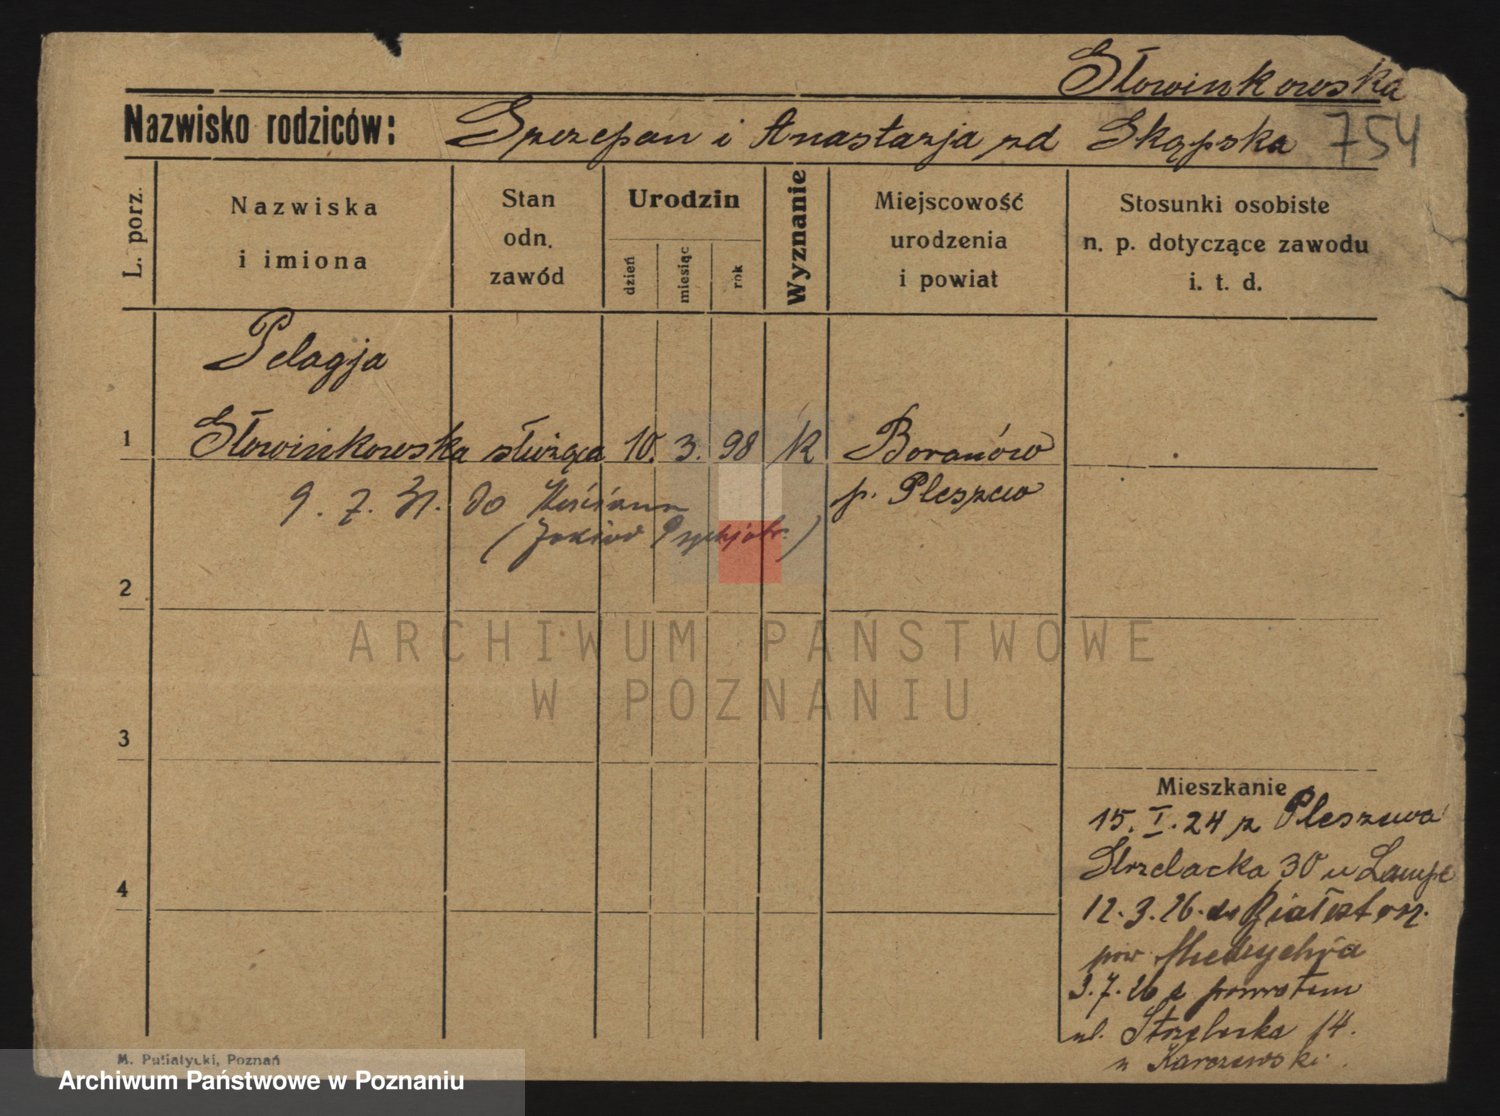 Słowinkowska
Nazwisko rodziców: Szczepan i Anastazja zd Skąpska 754
L. porz.
Nazwiska
i imiona
Stan
odn.
zawód
Urodzin
dzień
miesiąc
rok
Wyznanie
Miejscowość
urodzenia
i powiat
Stosunki osobiste
n. p. dotyczące zawodu
i. t. d.
Pelagja
1 Słowinkowska służąca 10. 3. 98 k Boranów
p. Pleszew
9. 7. 31. do Kościana
(Zakład Psychjatr.)
2
3
4
Mieszkanie
15. I. 24 z Pleszewa
Strzelacka 30 u Lampe
12. 3. 26. do
pow
3. 7. 26 z powrotem
ul. Strzelecka 14.
u Karczewski.
M. Putiatycki, Poznań
ARCHIWUM PAŃSTWOWE
W POZNANIU
Archiwum Państwowe w Poznaniu